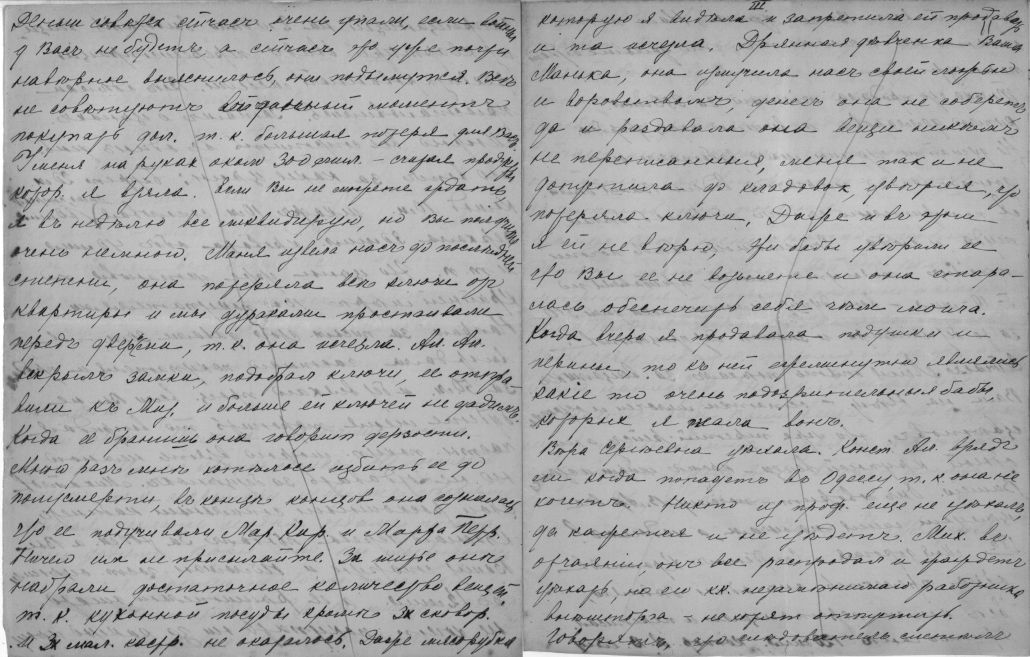 Деньги советск сейчас очень упали, если войны
у Васъ не будетъ а сейчас это уже почти
навѣрное выяснилось, они подымутся. Всѣ
не совѣтуютъ въ данный моментъ
покупать дол. т. к. большая потеря для Васъ.
У меня на руках около 300 милл. – считая продукты
котор. я взяла. Если Вы не можете ждать
я въ недѣлю все ликвидирую, но Вы получите
очень немного. Маня извела насъ до последней
степени, она потеряла все ключи от
квартиры и мы дураками простаивали
передъ дверьми, т. к. она исчезла. Ал. Ал.
вскрылъ замки, подобрал ключи, ее отпра-
вили къ Мих. и больше ей ключей не дадимъ.
Когда ее бранишь она говорит дерзости.
Много разъ мнѣ хотѣлось избить ее до
полусмерти, въ концѣ концов она созналась
что ее подучивали Мар. Кир. и Марфа Петр.
Ничего им не присылайте. За шитье онѣ
набрали достаточное количество вещей
т. к. кухонной посуды кромѣ 3х сковор.
и 3х мал. кастр. не оказалось. Даже мясорубка
III
которую я видѣла и запретила ей продавать
и та исчезла. Дрянная дѣвченка Ваша
Манька, она измучила насъ своей ложью
и воровствомъ денег она не соберет,
да и раздавала она вещи никѣмъ
не переписанныя, меня так и не
допустила до кладовок, увѣряя, что
потеряла ключи, Даже и въ этом
я ей не вѣрю. Эти бабы увѣрили ее
что Вы ее не возьмете и она стара-
лась обеспечить себя чѣм могла.
Когда вчера я продавала подушки и
перины, то къ ней ежеминутно являлись
какіе то очень подозрительныя бабы,
которых я гнала вонъ.
Вѣра Сергѣевна уѣхала. Конст. Ал. врядъ
ли когда попадетъ въ Одессу т. к. она не
хочетъ. Никто из проф. еще не уѣхалъ,
да кажется и не уѣдетъ. Мих. въ
отчаяніи, онъ все распродал и жаждетъ
уѣхать, но его кк незамѣнимаго работника
внешторга не хотят отпустить.
Говорятъ, что слѣдователь